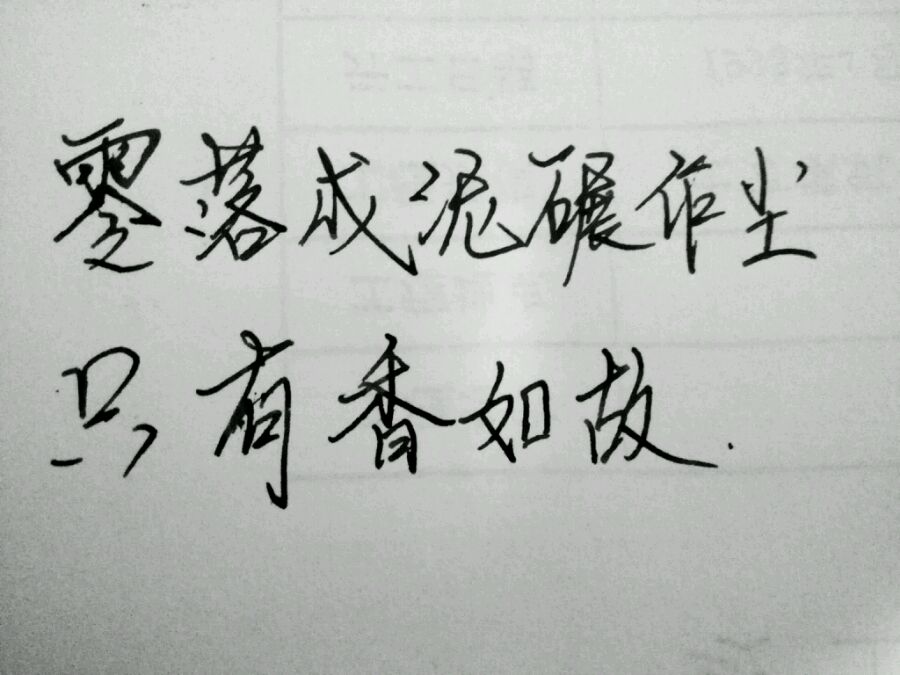 零落成泥碾作尘
只有香如故.